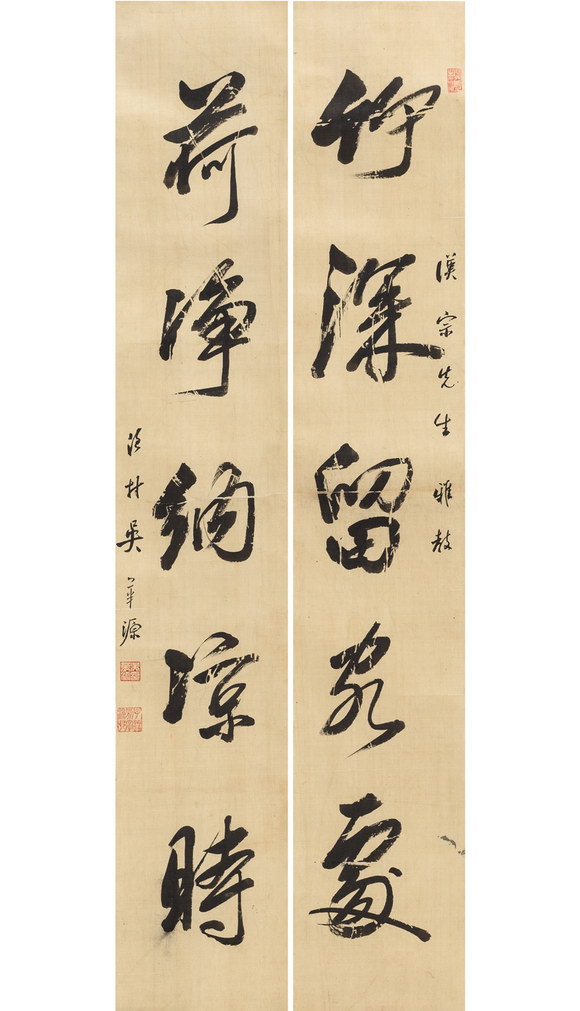 竹深留客處
漢宗先生雅教
荷淨納涼時
吳華源